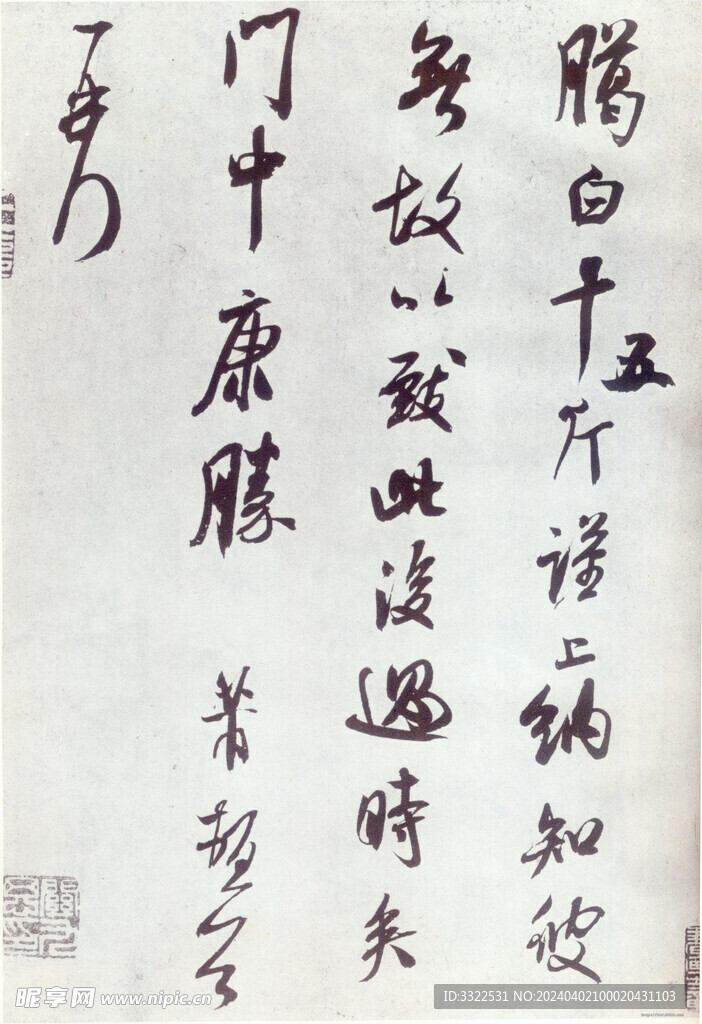 臈白十五斤謹上納知彼
無故以致此後過時矣
門中康勝
昵享网 www.nipic.cn
ID:3322531 NO:20240402100020431103